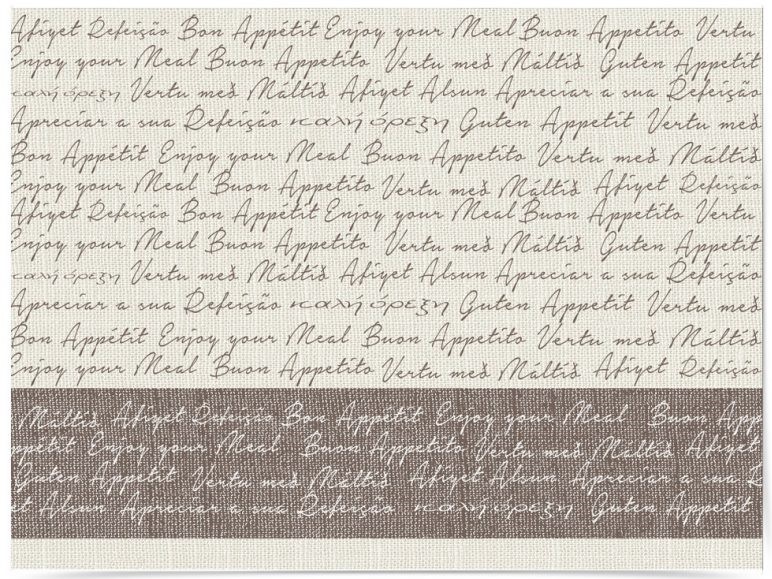 Afiyet Refeição Bon Appétit Enjoy your Meal Buon Appetito Vertu
Enjoy your Meal Buon Appetito Vertu með Máltíð Guten Appetit
καλή όρεξη Vertu með Máltíð Afiyet Alsun Apreciar a sua Refeição
Apreciar a sua Refeição καλή όρεξη Guten Appetit Vertu með
Bon Appétit Enjoy your Meal Buon Appetito Vertu með Máltíð
Enjoy your Meal Buon Appetito Vertu með Máltíð Afiyet Refeição
Afiyet Refeição Bon Appétit Enjoy your Meal Buon Appetito Vertu
Enjoy your Meal Buon Appetito Vertu með Máltíð Guten Appetit
καλή όρεξη Vertu með Máltíð Afiyet Alsun Apreciar a sua Refeição
Apreciar a sua Refeição καλή όρεξη Guten Appetit Vertu með
Bon Appétit Enjoy your Meal Buon Appetito Vertu með Máltíð
Enjoy your Meal Buon Appetito Vertu með Máltíð Afiyet Refeição
Máltíð Afiyet Refeição Bon Appétit Enjoy your Meal Buon App
ppétit Enjoy your Meal Buon Appetito Vertu með Máltíð Afiyet
Guten Appetit Vertu með Máltíð Afiyet Alsun Apreciar a sua
et Alsun Apreciar a sua Refeição καλή όρεξη Guten Appetit